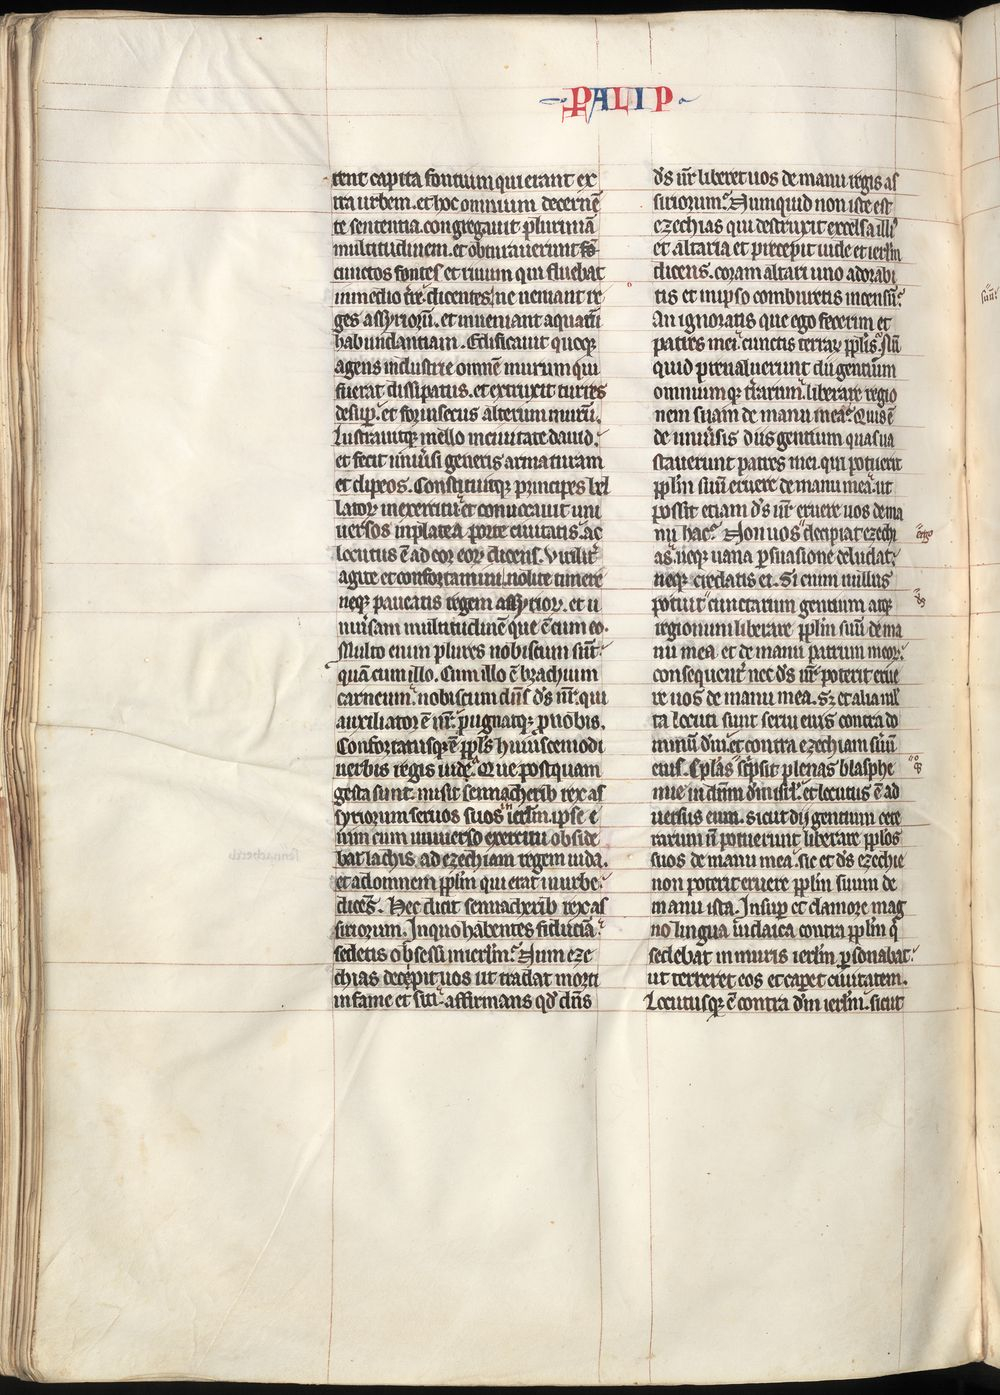 PALIP
tent capita fontium qui erant ex
tra urbem. et hoc omnium decerne᷑
te sententia. congregauit plurimā
multitudinem. et obturauerunt
cunctos fontes et riuum qui fluebat
in medio t̄re dicentes. ne ueniant re
ges assyrioꝝ. et inueniant aquaꝝ
habundantiam. Edificauit quoqꝫ
agens industrie omnē murum qui
fuerat dissipatus. et extruxit turres
desuꝑ. et forinsecus alterum murū.
Instrauitqꝫ mello in ciuitate dauid.
et fecit uniūsi generis armaturam
et clipeos. Constituitqꝫ principes bel
latoꝝ in exercitu et conuocauit uni
uersos in platea porte ciuitatis. ac
locutus ē ad cor eoꝝ dicens. Virilit᷑
agite et confortamini. nolite timere
neqꝫ paueatis regem assyrioꝝ. et u
niūsam multitudinē que ē cum eo.
Multo enim plures nobiscum sūt
quā cum illo. Cum illo ē brachium
carneum. nobiscum dn̄s d̄s nr̄. qui
auxiliator ē nr̄. pugnatqꝫ ꝓ uobis.
Confortatusqꝫ ē ppl̄s huiuscemodi
uerbis regis iude. Que postquam
gesta sunt. misit sennacherib rex as
syriorum seruos suos in ierl̄m. ipse e
nim cum uniuerso exercitu obside
bat lachis. ad ezechiam regem iuda.
et ad omnem ppl̄m qui erat in urbe.
dicēs. Hec dicit sennacherib rex as
siriorum. In quo habentes fiduciā
sedetis obsessi in ierl̄m. Num eze
chias decepit uos ut tradat morti
in fame et siti. affirmans qd̄ dn̄s
d̄s nr̄ liberet uos de manu regis as
siriorum. Numquid non iste est
ezechias qui destruxit excelsa illi᷒
et altaria et precepit iude et ierl̄m
dicens. coram altari uno adorabi
tis et in ipso comburetis incensū.
An ignoratis que ego fecerim et
patres mei cunctis terraꝝ ppl̄is. Nū
quid preualuerunt dii gentium
omniumqꝫ t̄rarum. liberare regio
nem suam de manu mea. Quis ē
de uniūsis diis gentium quas ua
stauerunt patres mei. qui potuerit
ppl̄m suū eruere de manu mea. ut
possit etiam d̄s ur̄ eruere uos de ma
nu hac. Non uos decipiat ezechi
ergo
as. neqꝫ uana ꝑsuasione deludat.
neqꝫ credatis ei. Si enim nullus
potuit cunctarum gentium atqꝫ
regionum liberare ppl̄m suū de ma
nu mea et de manu patrum meoꝝ.
consequent᷑ nec d̄s ur̄ poterit erue
re uos de manu mea. Sꝫ et alia ml̄
ta locuti sunt serui eius contra do
minū dm̄. et contra ezechiam suū
eius. Epl̄as sc̄psit plenas blasphe
mie in dn̄m dm̄ isrl̄. et locutus ē ad
uersus eum. Sicut dij gentium cete
rarum n̄ potuerunt liberare ppl̄os
suos de manu mea. sic et d̄s ezechie
non poterit eruere ppl̄m suum de
manu ista. Insuꝑ et clamore mag
no lingua iudaica contra ppl̄m q̄
sedebat in muris ierl̄m ꝑsonabat.
ut terreret eos et caꝑet ciuitatem.
Locutusqꝫ ē contra dm̄ ierl̄m. sicut